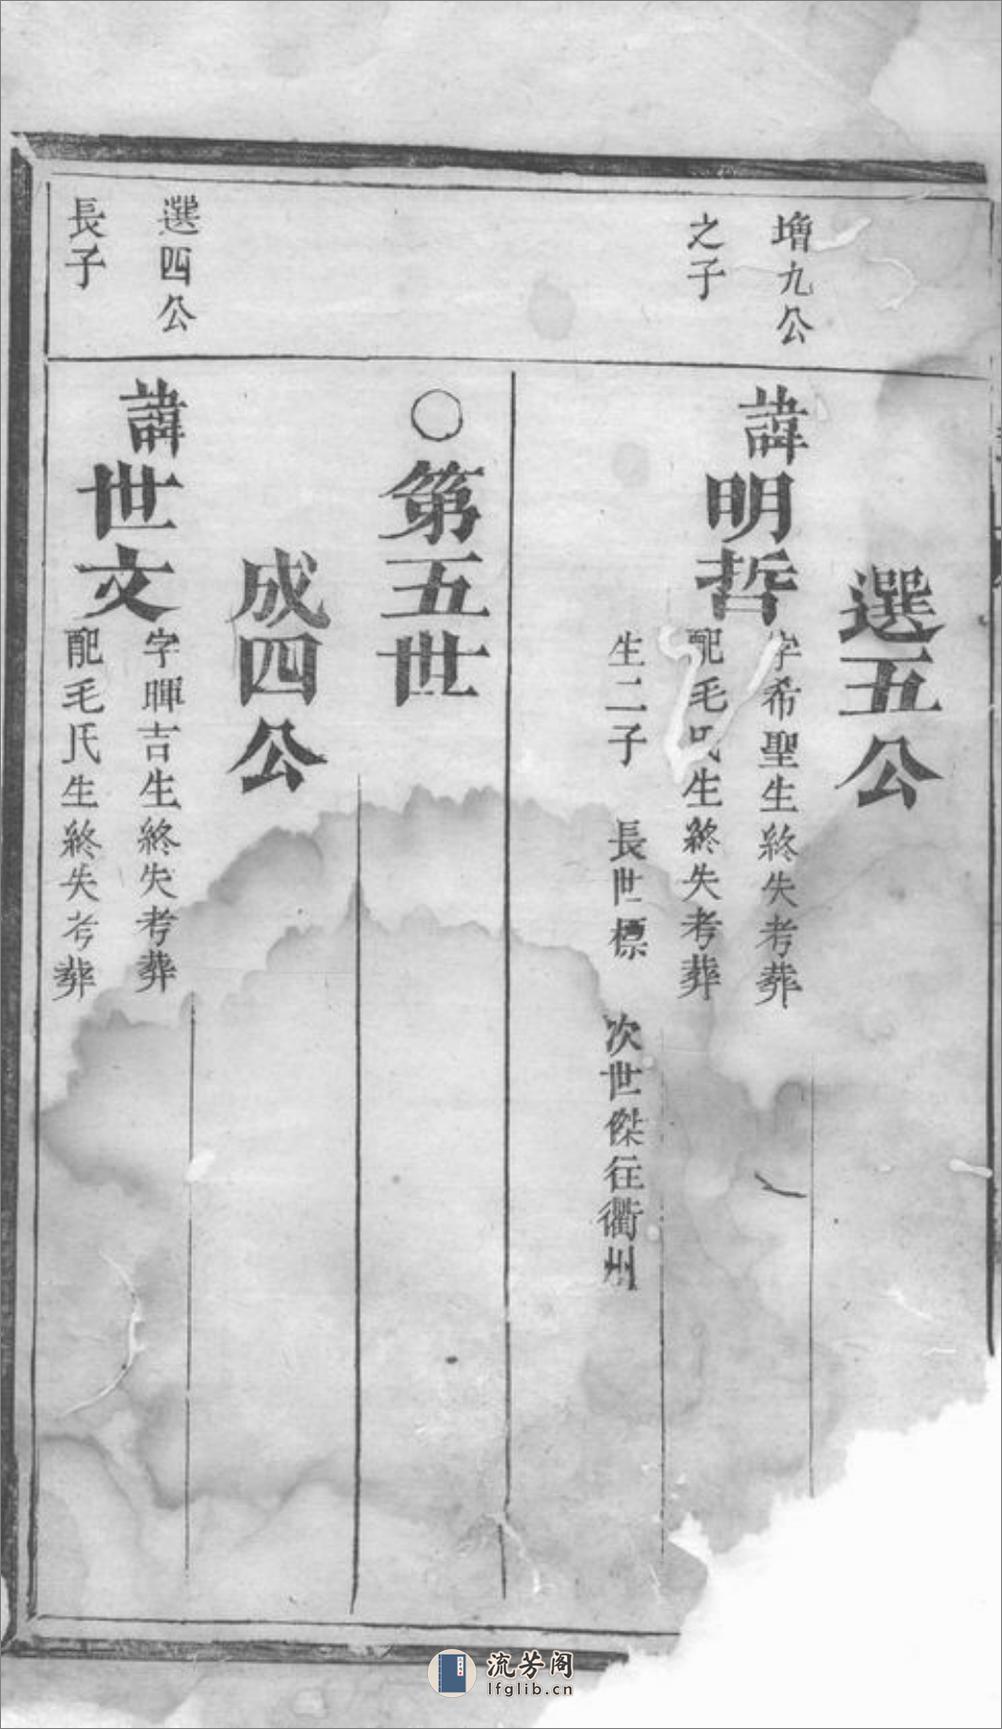 增九公
之子
選五公
諱明哲
字希聖生終失考葬
配毛氏生終失考葬
生二子 長世標 次世傑往衢州
○第五世
成四公
選四公
長子
諱世文
字暉吉生終失考葬
配毛氏生終失考葬
流芳阁
lfglib.cn